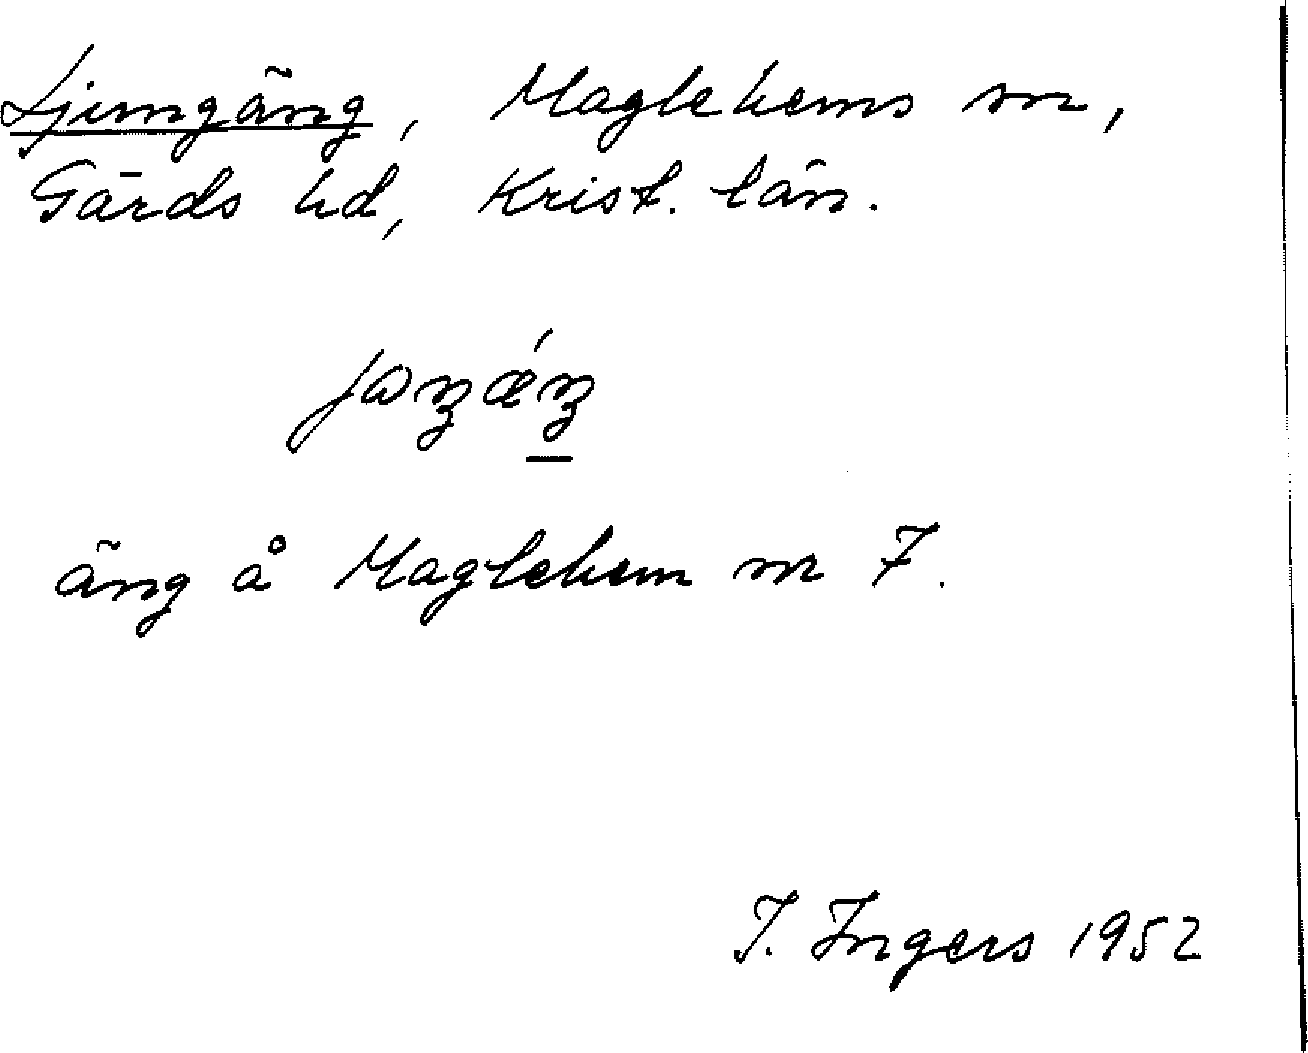 Ljungäng, Maglehems sn,
Gärds hd, Krist. län.
jɷŋǽŋ
äng å Maglehem nr 7.
I. Ingers 1952